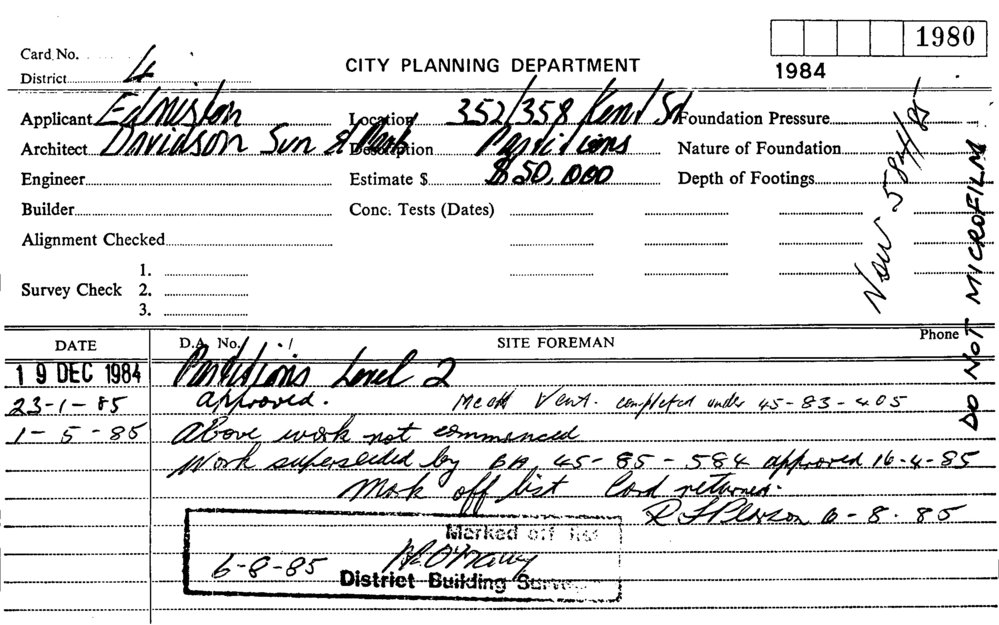 1980
Card No.
1984
District 4
CITY PLANNING DEPARTMENT
Applicant Edmiston Location 352/358 Kent St Foundation Pressure
Architect Davidson Sun St Description Partitions Nature of Foundation
Engineer Estimate $ $50,000 Depth of Footings
Builder Conc. Tests (Dates)
Alignment Checked
Survey Check 1.
2.
3.
Now 584/85
DO NOT MICROFILM
DATE D.A. No. / SITE FOREMAN Phone
19 DEC 1984 Partitions Level 2
23-1-85 approved. Mech Vent. completed under 45-83-405
1-5-85 Above work not commenced
Work superseded by BA 45-85-584 approved 16-4-85
Mark off list Card returned.
6-8-85
Marked off list
6-8-85
District Building